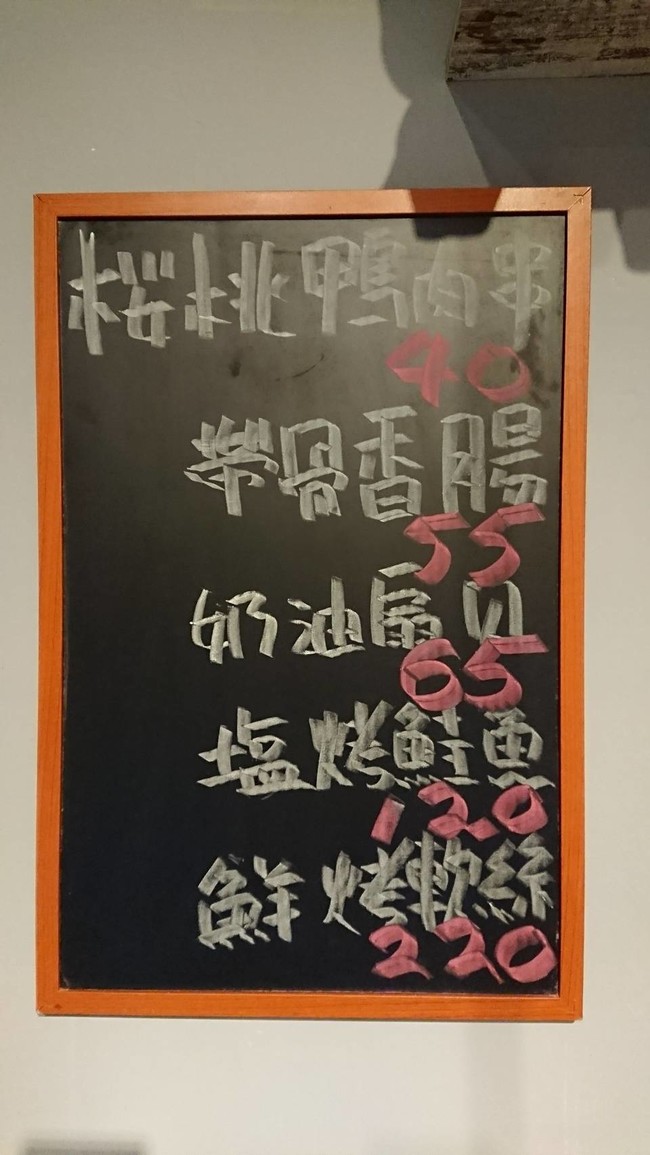 桜桃鴨肉串
40
帶骨香腸
55
奶油扇贝
65
塩烤鮭魚
120
鮮烤軟絲
220